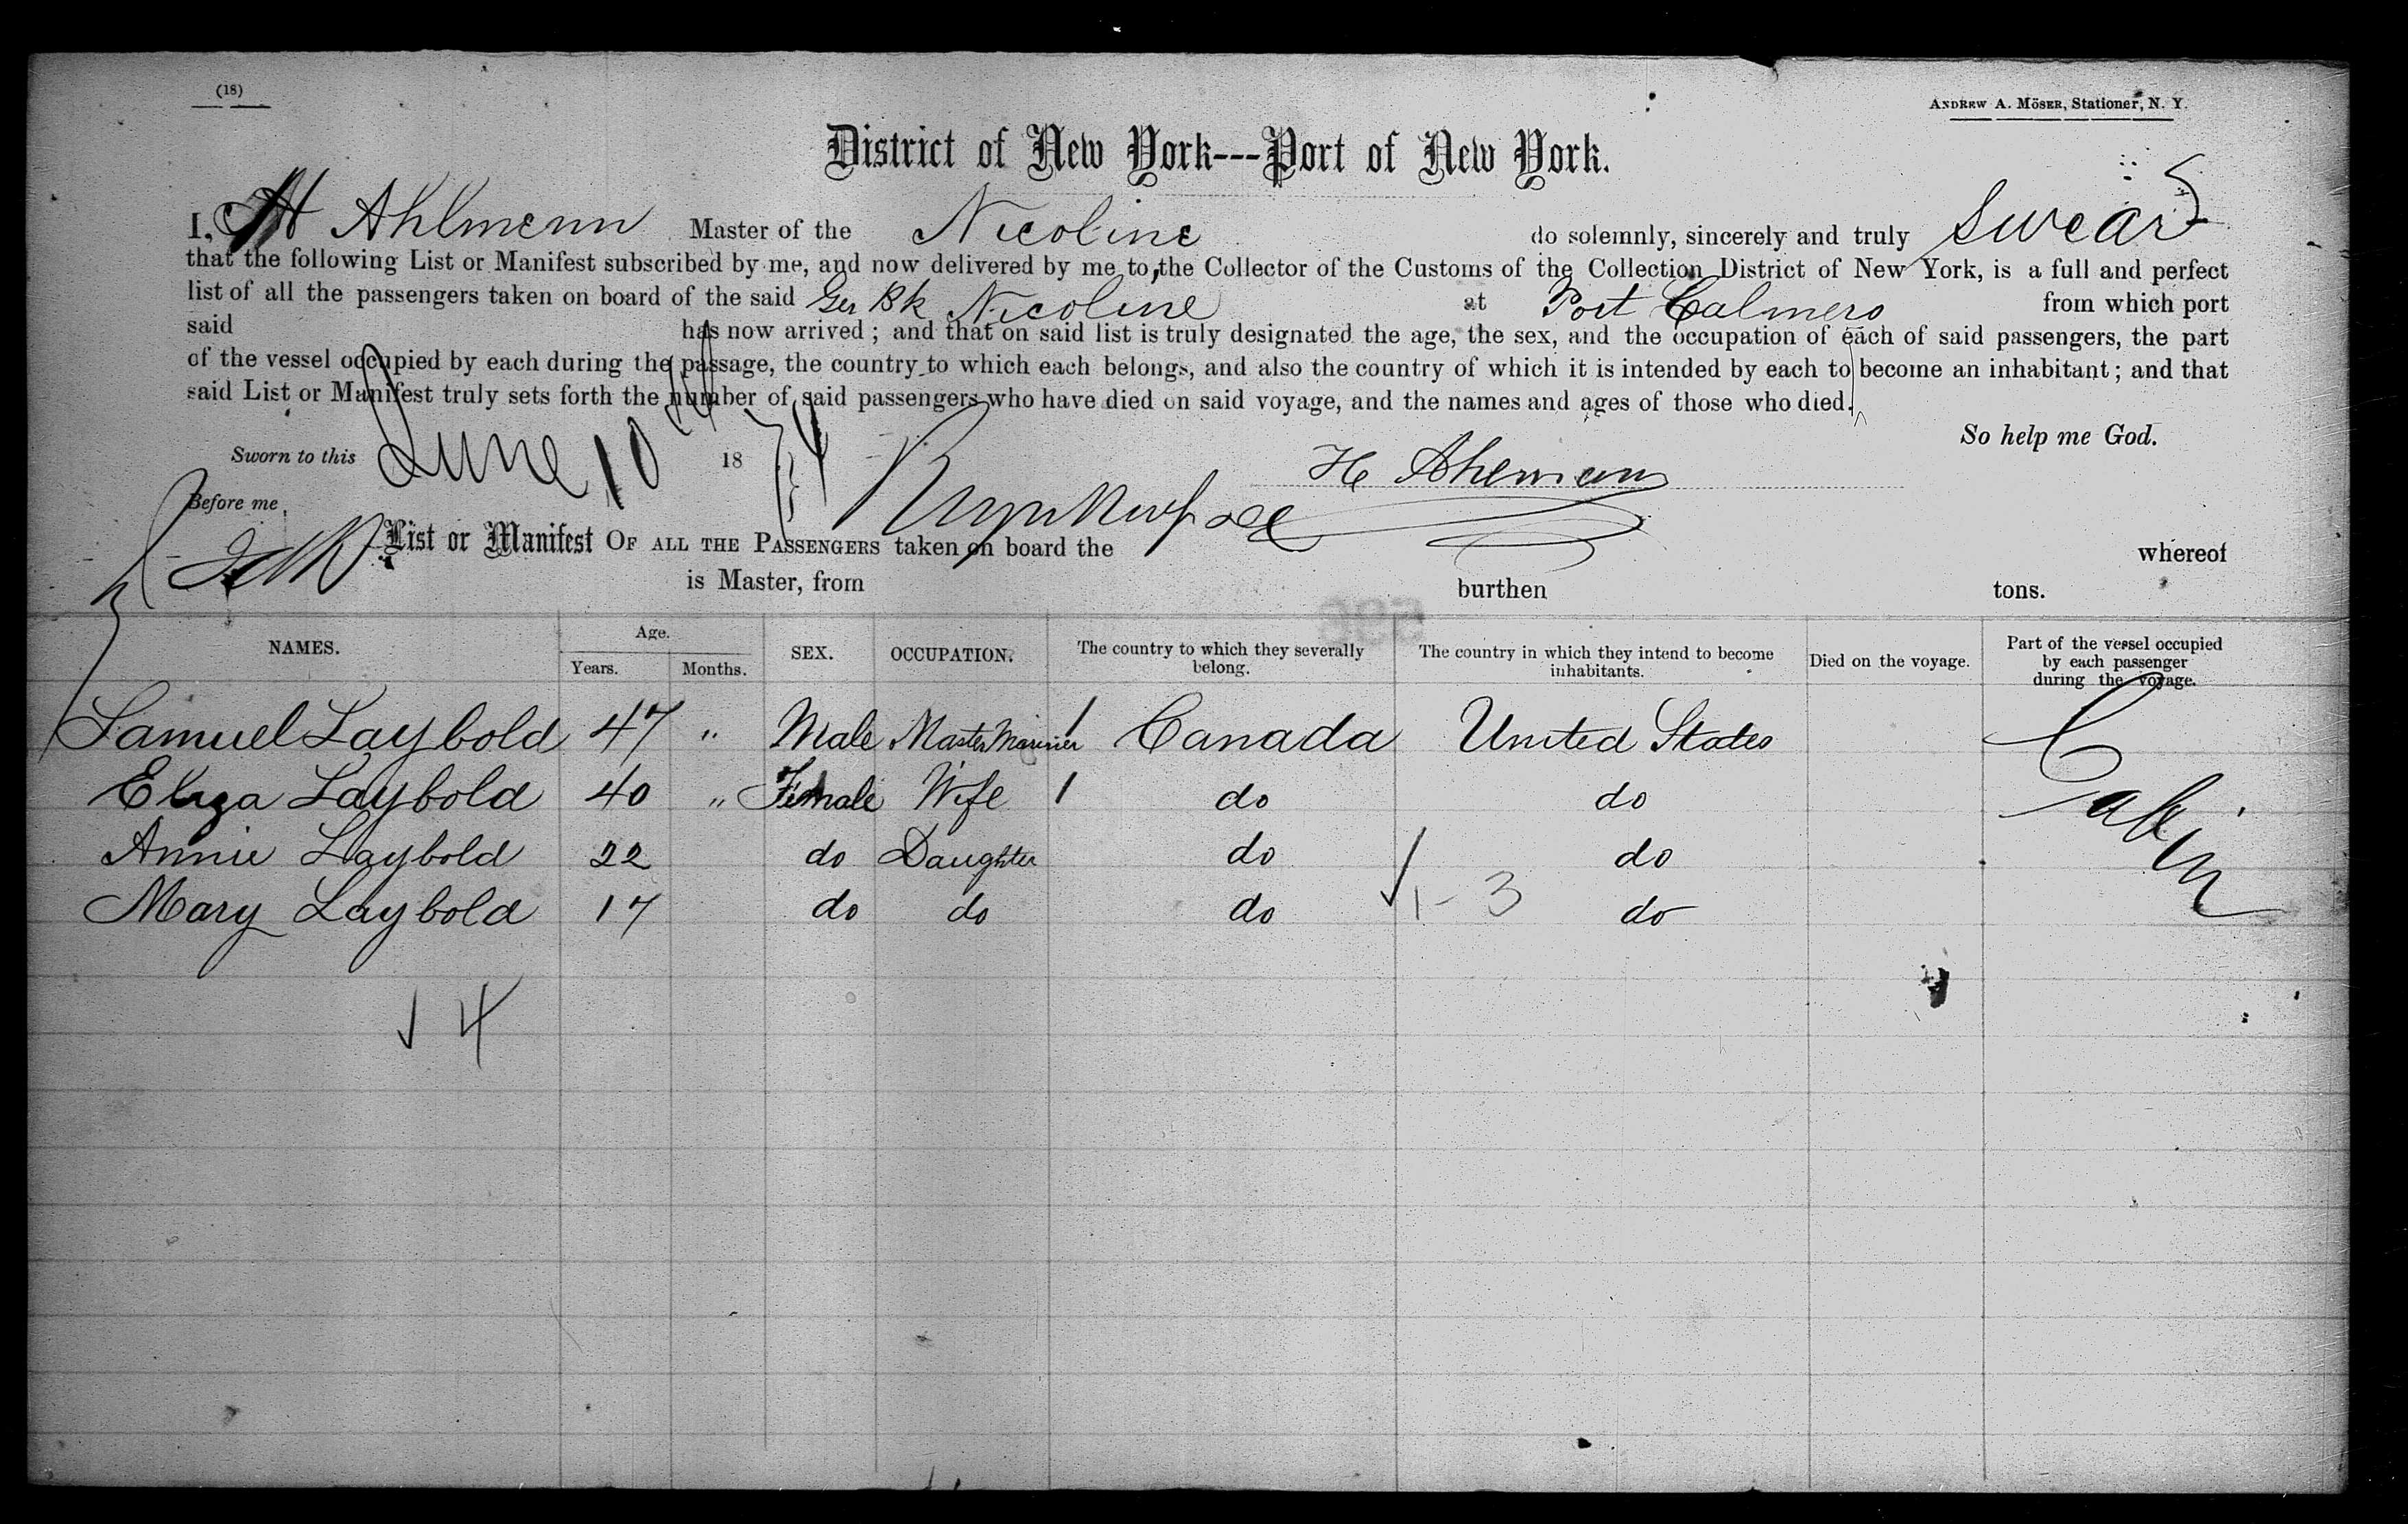 (18)
ANDREW A. MÖSER, Stationer, N. Y.
District of New York---Port of New York.
I, H Ahlmann Master of the Nicoline do solemnly, sincerely and truly swear
that the following List or Manifest subscribed by me, and now delivered by me to the Collector of the Customs of the Collection District of New York, is a full and perfect
list of all the passengers taken on board of the said Ger Bk Nicoline at Port Calmero from which port
said has now arrived; and that on said list is truly designated the age, the sex, and the occupation of each of said passengers, the part
of the vessel occupied by each during the passage, the country to which each belongs, and also the country of which it is intended by each to become an inhabitant; and that
said List or Manifest truly sets forth the number of said passengers who have died on said voyage, and the names and ages of those who died.
So help me God.
Sworn to this June 10th 1874 H Ahlmann
Before me
List or Manifest OF ALL THE PASSENGERS taken on board the whereof
is Master, from burthen tons.
NAMES. Age. Years. Months. SEX. OCCUPATION. The country to which they severally belong. The country in which they intend to become inhabitants. Died on the voyage. Part of the vessel occupied by each passenger during the voyage.
Samuel Laybold 47 " Male Master Mariner 1 Canada United States Cabin
Eliza Laybold 40 " Female Wife 1 do do
Annie Laybold 22 do Daughter do do
Mary Laybold 17 do do do 1-3 do
4